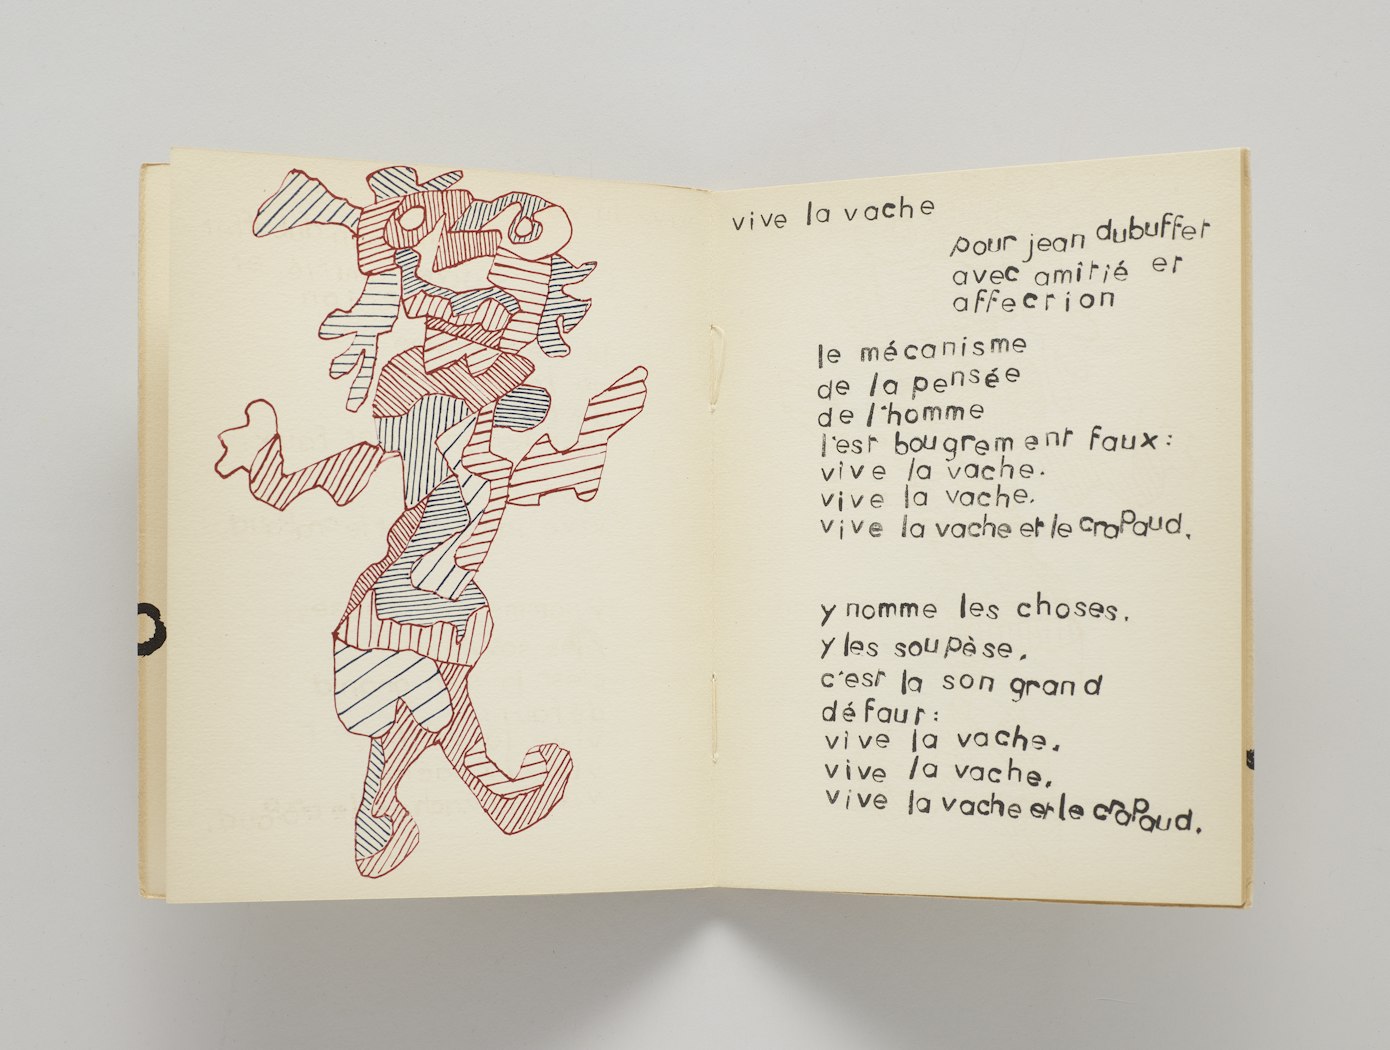 vive la vache
pour jean dubuffet
avec amitié et
affection
le mécanisme
de la pensée
de l'homme
l'est bougrement faux:
vive la vache.
vive la vache.
vive la vache et le crapaud.
y nomme les choses.
y les soupèse.
c'est la son grand
défaut:
vive la vache.
vive la vache.
vive la vache et le crapaud.